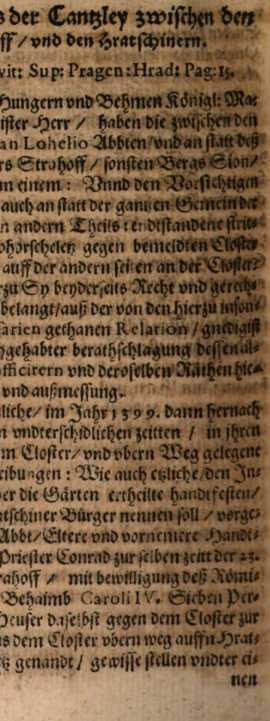 s der Cantzley zwischen den
ff / vnd den Hratschinern.
vit: Sup: Pragen: Hrad: Pag: 15.
Hungern vnd Behmen Königl: Ma:
ister Herr / haben die zwischen den
an Lohelio Abbten / vnd an statt deß
rs Strahoff / sonsten Bergs Sion /
m einem: Vnnd den Vorsichtigen
auch an statt der gantzen Gemein der
n andern Theils: entstandene strit
ohorscheletz gegen bemeldten Closter
auff der andern seiten an der Closter
zu Sy beyderseits Recht vnd gerech
belangt / auß der von den hierzu inson
arien gethanen Relation / gnedigist
gehabter berathschlagung dessen al
fficirern vnd deroselben Räthen hie
vnd außmessung.
liche / im Jahr 1399. dann hernach
n vndterschidlichen zeitten / in jhren
m Closter / vnd vbern Weg gelegene
eibungen: Wie auch etzliche / den In
er die Gärten ertheilte handtfesten /
tschiner Bürger nennen soll / vorge
Abbt / Eltere vnd vornemere Handt
Priester Conrad zur selben zeitt der 23.
rahoff / mit bewilligung deß Römi
Behaimb Caroli IV. Sieben Per
Heuser daselbst gegen dem Closter zur
s dem Closter vbern weg auffn Hrat
tz genandt / gewisse stellen vndter ei
nen